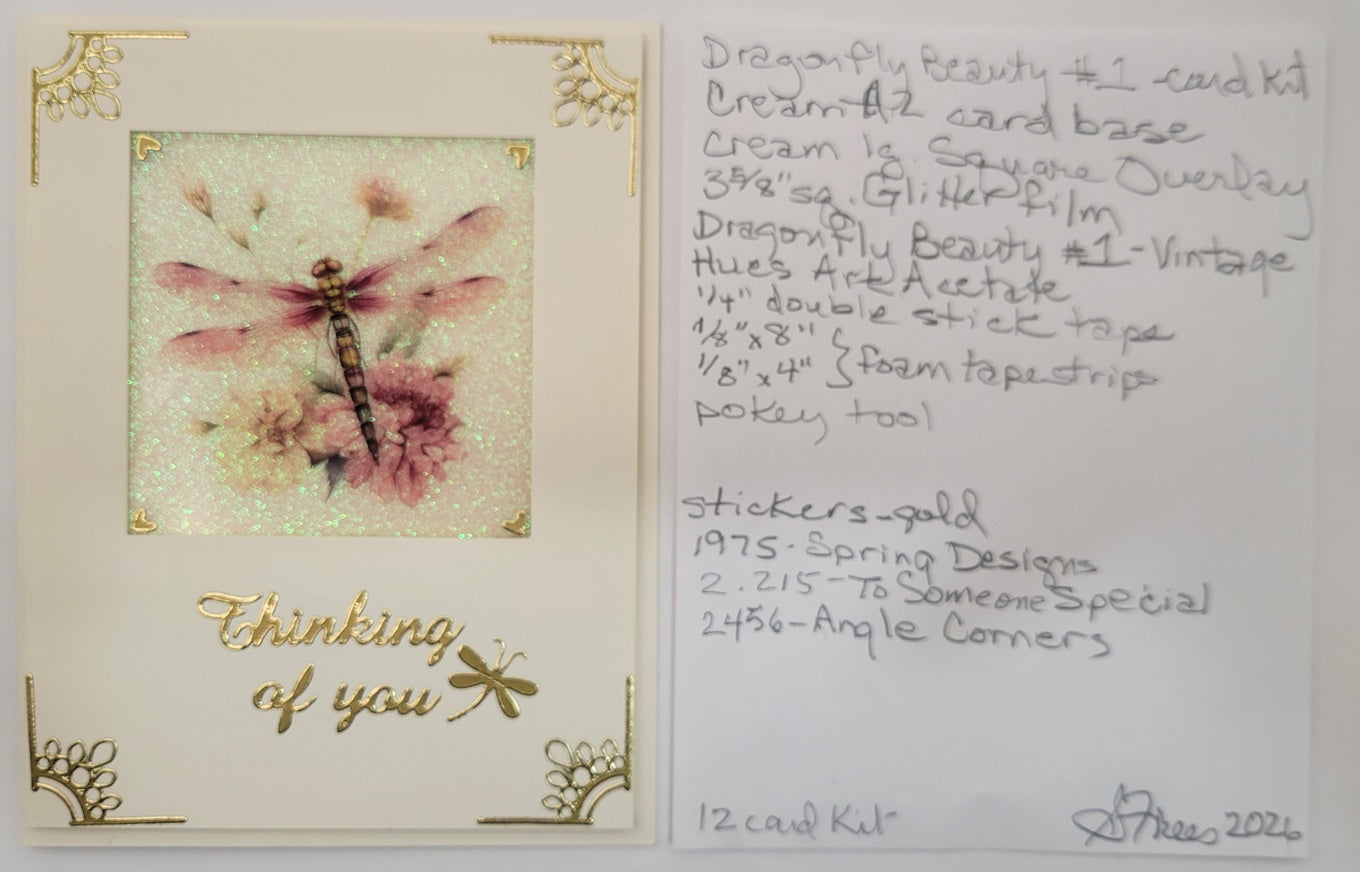 Thinking
of you
Dragonfly Beauty #1 - card kit
Cream A2 card base
Cream lg. Square Overlay
3 5/8" sq. Glitter film
Dragonfly Beauty #1 - Vintage
Hues Art Acetate
1/4" double stick tape
1/8" x 8"
1/8" x 4" } foam tape strips
pokey tool
stickers - gold
1975 - Spring Designs
2.215 - To Someone Special
2456 - Angle Corners
12 card Kit
2026